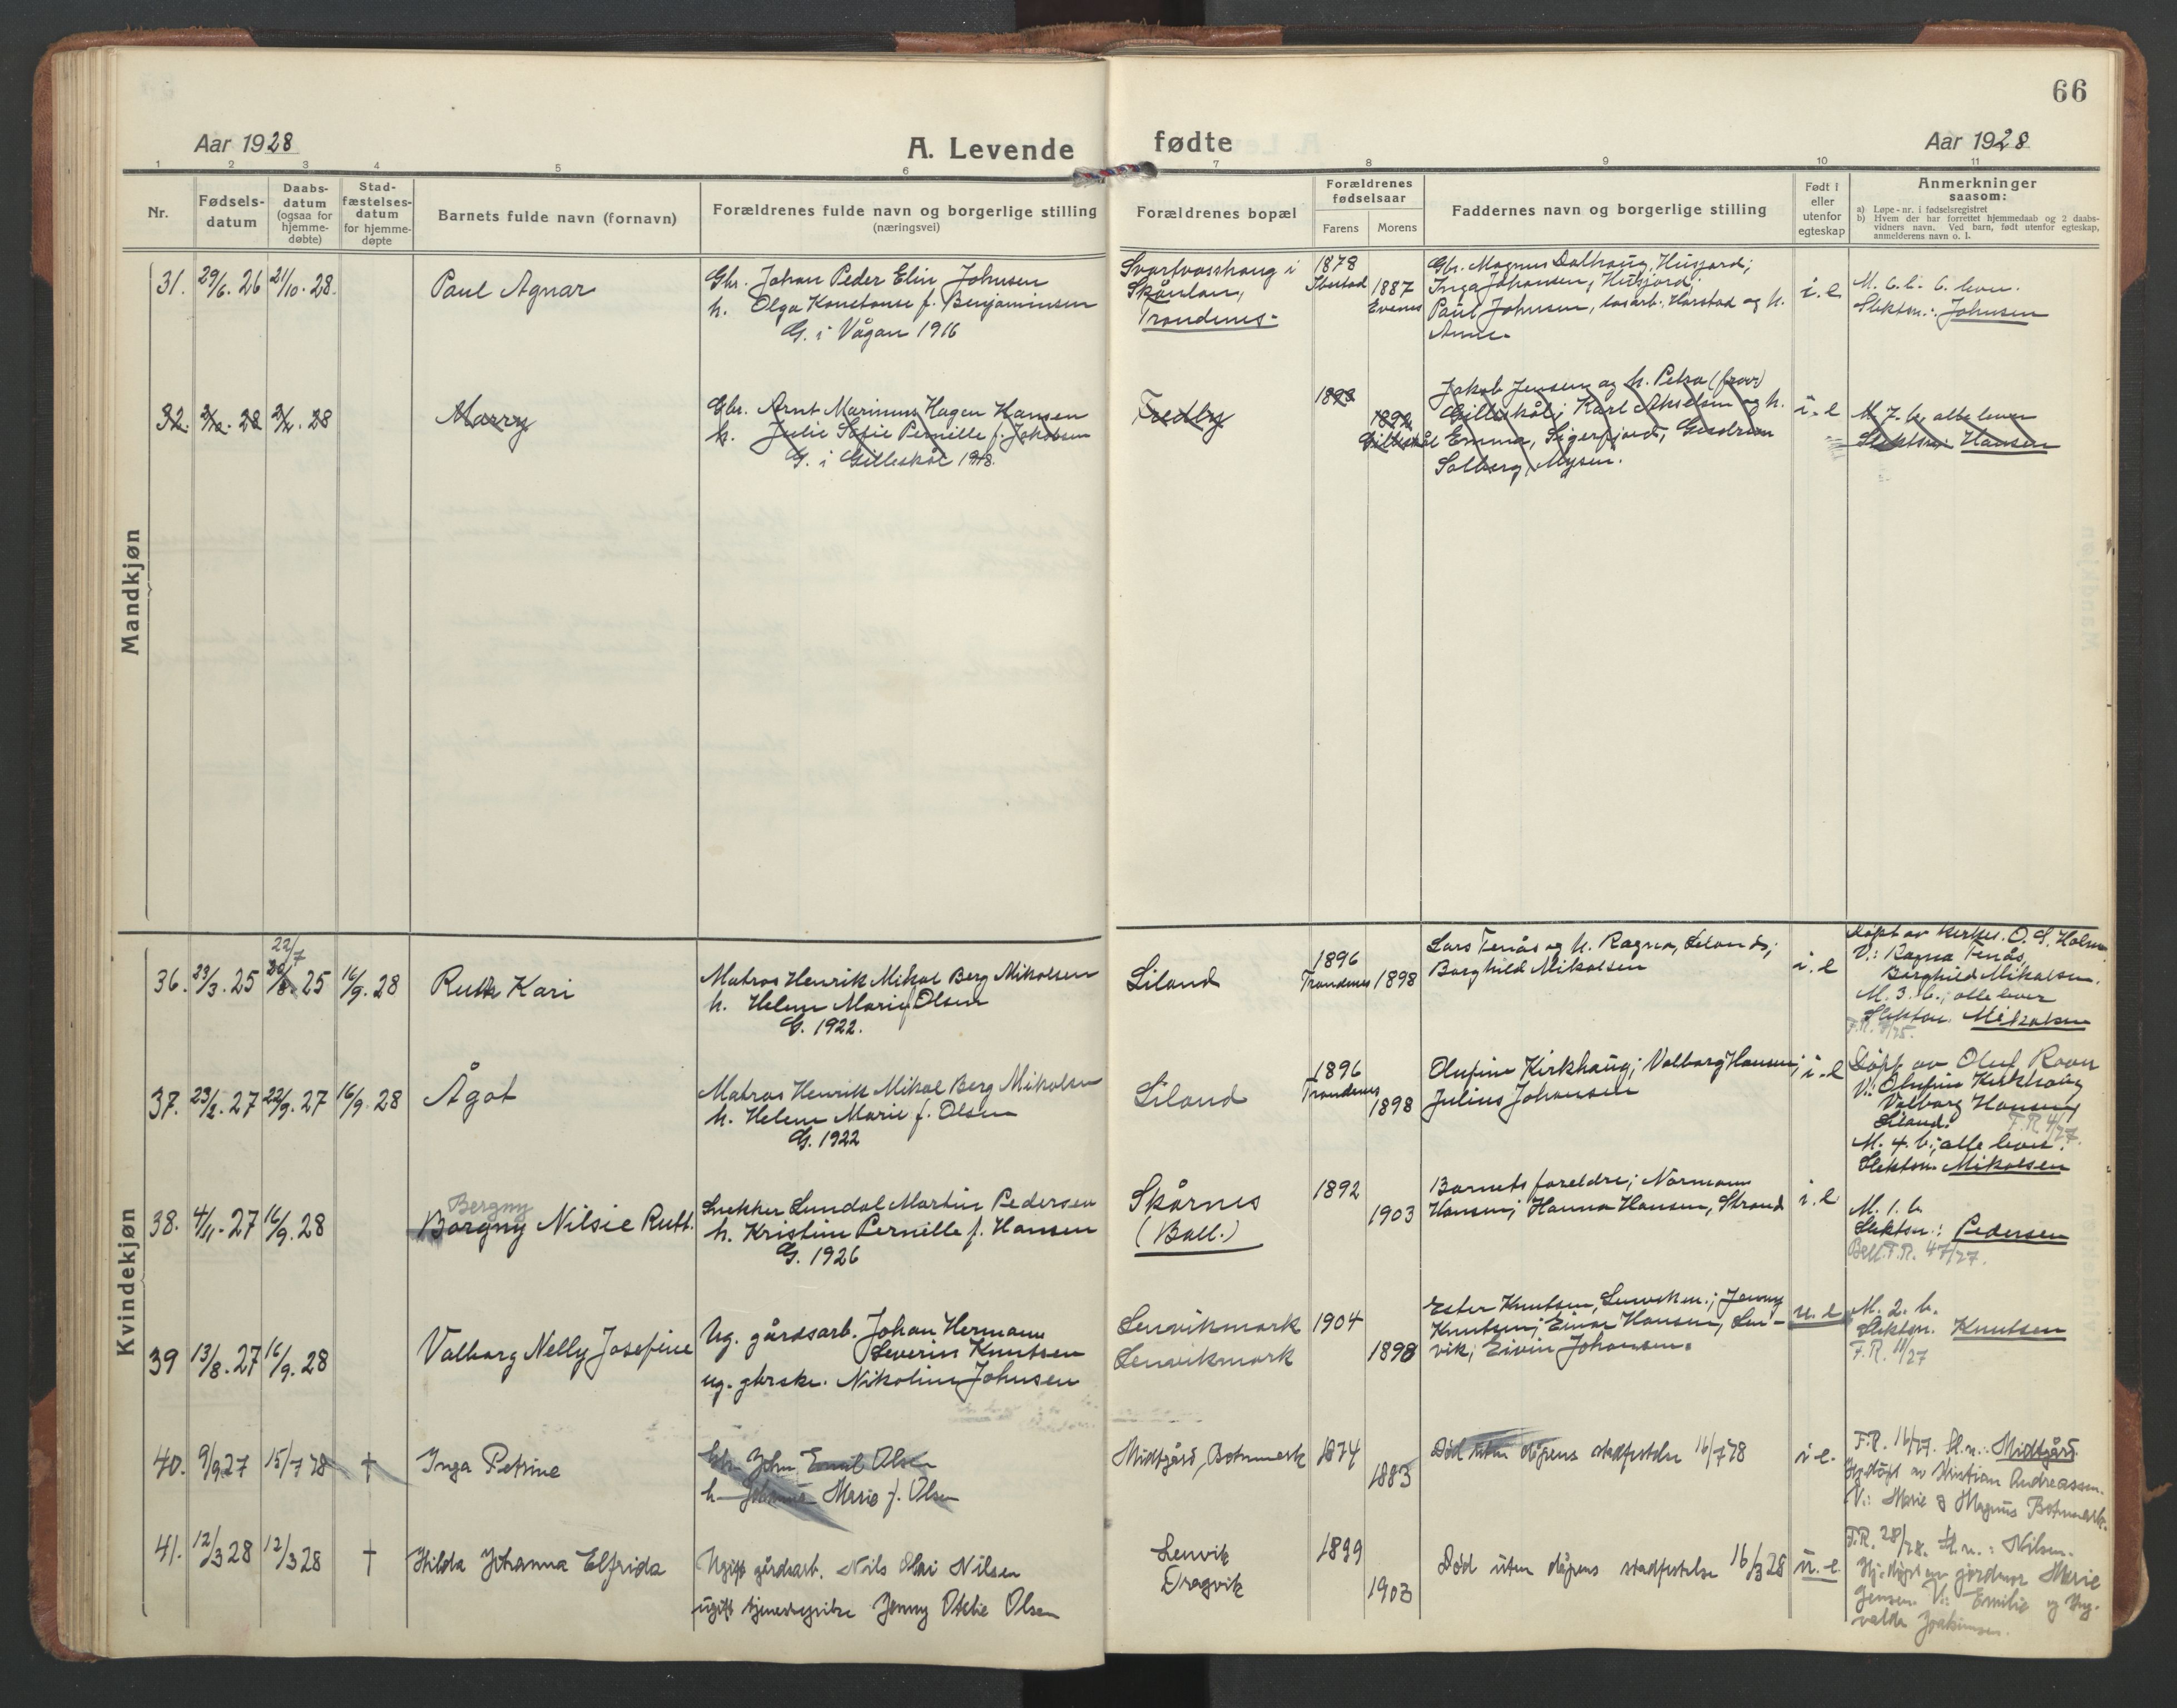 66
Aar 1928
A. Levende fødte
Aar 1928
1 2 3 4 5 6 7 8 9 10 11
Nr.
Fødsels-
datum
Daabs-
datum
(ogsaa for
hjemme-
døbte)
Stad-
fæstelses-
datum
for hjemme-
døpte
Barnets fulde navn (fornavn)
Forældrenes fulde navn og borgerlige stilling
(næringsvei)
Forældrenes bopæl
Forældrenes
fødselsaar
Farens
Morens
Faddernes navn og borgerlige stilling
Født i
eller
utenfor
egteskap
Anmerkninger
saasom:
a) Løpe-nr. i fødselsregistret
b) Hvem der har forrettet hjemmedaab og 2 daabs-
vidners navn. Ved barn, født utenfor egteskap,
anmelderens navn o. l.
Mandkjøn
31.
29/6. 26
21/10. 28.
Paul Agnar
Gbr. Johan Peder Elin Johnsen
h. Olga Konstanse f. Benjaminsen
G. i Vågan 1916
Svartvasshaug i
Skånlan,
Trondenes.
1878
Ibestad
1887
Evenes
Gbr. Magnus Dalhaug, Husjord;
Inga Johansen, Husjord;
Paul Johnsen, løsarb. Harstad og h.
Anne.
i. e.
M. 6. b. 6. lever.
Slektsn.: Johnsen
32.
28
28
Marry
Gbr. Arnt Marinus Hagen Hansen
h. Julie Sofie Pernille f. Jakobsen
G. i Gilleskål 1918.
Fredly
1893
1892
Gilleskål
Jakob Jensen og h. Petra (fravr)
Gilleskål; Karl Akselsen og h.
Emma, Sigerfjord;
Solberg, Mysen.
i. e
M. 7. b. alle lever
Slektsn: Hansen
Kvindekjøn
36.
23/3. 25
22/7
25
16/9. 28
Ruth Kari
Matros Henrik Mikal Berg Mikalsen
h. Helene Marie f Olsen
G. 1922.
Liland
1896
Trondenes
1898
Lars Tenås og h. Ragna, Liland;
Borghild Mikalsen
i. e
Døpt av kirkes. O. S. Holm
V.: Ragna Tenås,
Borghild Mikalsen.
M. 3. b.; alle lever
Slektsn. Mikalsen
37.
23/2. 27
22/9. 27
16/9. 28
Ågot
Matros Henrik Mikal Berg Mikalsen
h. Helene Marie f. Olsen
G. 1922
Liland
1896
Trondenes
1898
Olufine Kirkhaug; Valborg Hansen;
Julius Johansen
i. e
Døpt av Oluf
V: Olufine Kirkhaug
Valborg Hansen,
Liland. F.R. 4/27.
M. 4. b; alle lever.
Slektsn. Mikalsen
38.
4/11. 27
16/9. 28
Bergny
Borgny Nilsie Rutt.
Snekker Lundal Martin Pedersen
h. Kristine Pernille f. Hansen
G. 1926
Skårnes
(Ball.)
1892
1903
Barnets foreldre; Normann
Hansen; Hanna Hansen, Strand
i. e
M. 1. b
Slektsn.: Pedersen
Ball. F.R. 47/27.
39
13/8. 27
16/9. 28
Valborg Nelly Josefine
Ug. gårdsarb. Johan Hermann
Severin Knutsen
ug. gbrske. Nikoline Johnsen
Lenvikmark
Lenvikmark
1904
1898
Ester Knutsen, Lenvikm.; Jenny
Knutsen; Einar Hansen, Len-
vik; Eivin Johansen.
u. e
M. 2. b.
Slektsn. Knutsen
F.R. 11/27
40.
9/9 27
15/7 28
†
Inga Petrine
Gbr. John Emil Olsen
h. Johanna Marie f. Olsen
Midtgård, Botnmark
1874
1883
Død uten dåpens stadfestelse 16/7 28
i e.
F.R. 16/27. Sl.n.: Midtgård
Hj.døpt av Kristian Andreassen.
V.: Marie & Magnus Botnmark.
41.
12/3 28
12/3 28
†
Hilda Johanna Elfrida
Ugift gårdsarb. Nils Olai Nilsen
ugift tjenestepike Jenny Otelie Olsen
Lenvik
Dragvik
1899
1903
Død uten dåpens stadfestelse 16/3 28
u. e.
F.R. 28/28. Sl.n.: Nilsen.
Hj.døpt av jordmor Marie
Jensen. V: Emilie og Ing-
valda Joakimsen.